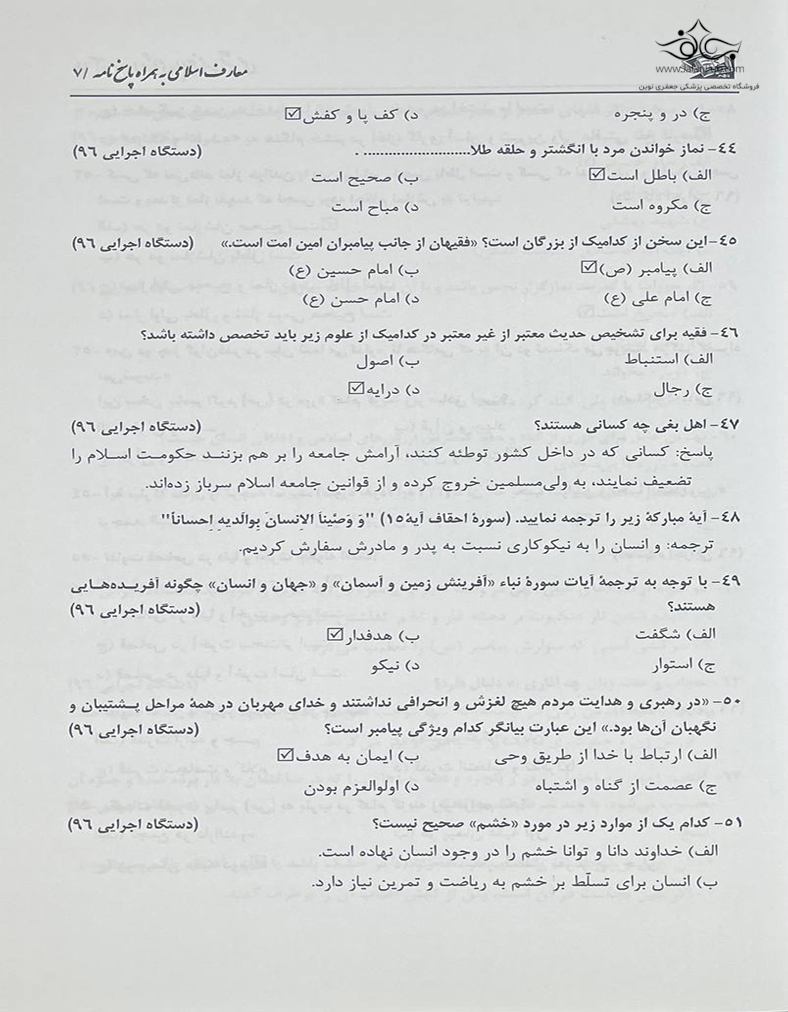 معارف اسلامی به همراه پاسخ نامه /۷
فروشگاه تخصصی پزشکی جعفری نوین
ج) در و پنجره د) کف پا و کفش☑
۴۴- نماز خواندن مرد با انگشتر و حلقه طلا.......................... . (دستگاه اجرایی ۹۶)
الف) باطل است☑ ب) صحیح است
ج) مکروه است د) مباح است
۴۵-این سخن از کدامیک از بزرگان است؟ «فقیهان از جانب پیامبران امین امت است.» (دستگاه اجرایی ۹۶)
الف) پیامبر (ص)☑ ب) امام حسین (ع)
ج) امام علی (ع) د) امام حسن (ع)
۴۶- فقیه برای تشخیص حدیث معتبر از غیر معتبر در کدامیک از علوم زیر باید تخصص داشته باشد؟
الف) استنباط ب) اصول
ج) رجال د) درایه☑
۴۷- اهل بغی چه کسانی هستند؟ (دستگاه اجرایی ۹۶)
پاسخ: کسانی که در داخل کشور توطئه کنند، آرامش جامعه را بر هم بزنند حکومت اسلام را
تضعیف نمایند، به ولی‌مسلمین خروج کرده و از قوانین جامعه اسلام سرباز زده‌اند.
۴۸- آیهٔ مبارکهٔ زیر را ترجمه نمایید. (سورهٔ احقاف آیهٔ ۱۵) "وَ وَصَّیناَ الاِنسانَ بِوالَدیهِ اِحساناً"
ترجمه: و انسان را به نیکوکاری نسبت به پدر و مادرش سفارش کردیم.
۴۹- با توجه به ترجمهٔ آیات سورهٔ نباء «آفرینش زمین و آسمان» و «جهان و انسان» چگونه آفریده‌هایی
هستند؟ (دستگاه اجرایی ۹۶)
الف) شگفت ب) هدفدار☑
ج) استوار د) نیکو
۵۰- «در رهبری و هدایت مردم هیچ لغزش و انحرافی نداشتند و خدای مهربان در همهٔ مراحل پشتیبان و
نگهبان آن‌ها بود.» این عبارت بیانگر کدام ویژگی پیامبر است؟ (دستگاه اجرایی ۹۶)
الف) ارتباط با خدا از طریق وحی ب) ایمان به هدف☑
ج) عصمت از گناه و اشتباه د) اولوالعزم بودن
۵۱- کدام یک از موارد زیر در مورد «خشم» صحیح نیست؟ (دستگاه اجرایی ۹۶)
الف) خداوند دانا و توانا خشم را در وجود انسان نهاده است.
ب) انسان برای تسلّط بر خشم به ریاضت و تمرین نیاز دارد.